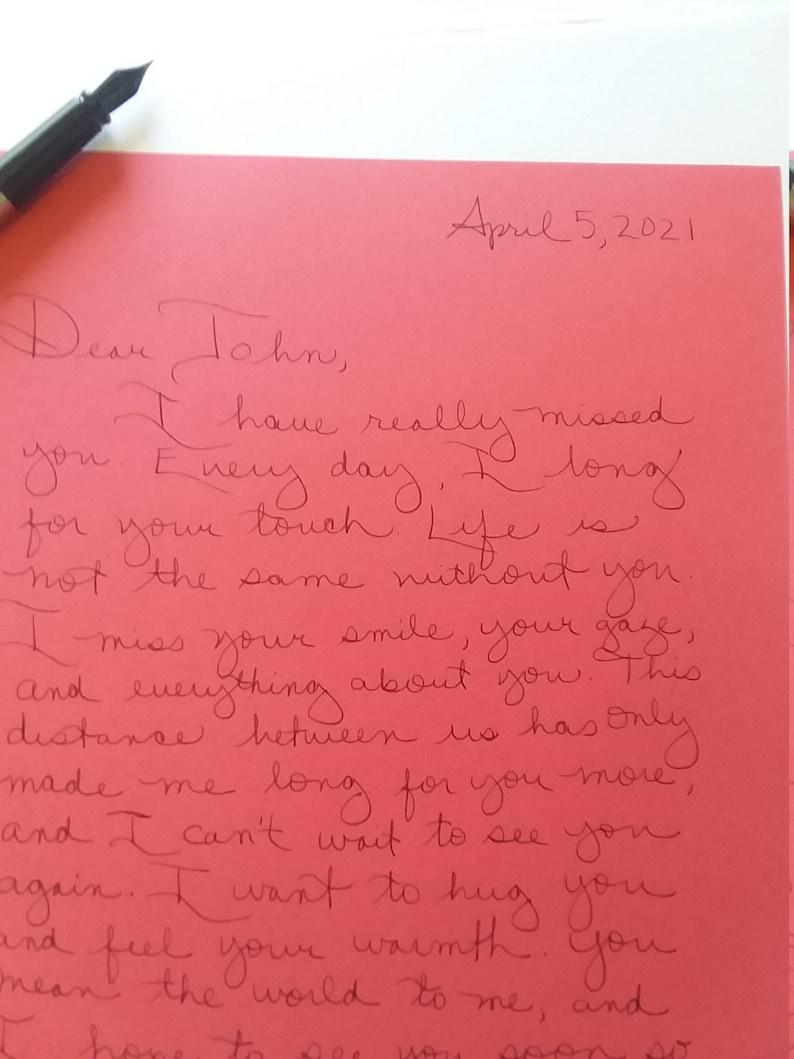 April 5, 2021
Dear John,
I have really missed
you. Every day, I long
for your touch. Life is
not the same without you.
I miss your smile, your gaze,
and everything about you. This
distance between us has only
made me long for you more,
and I can't wait to see you
again. I want to hug you
and feel your warmth. You
mean the world to me, and
I hope to see you soon so